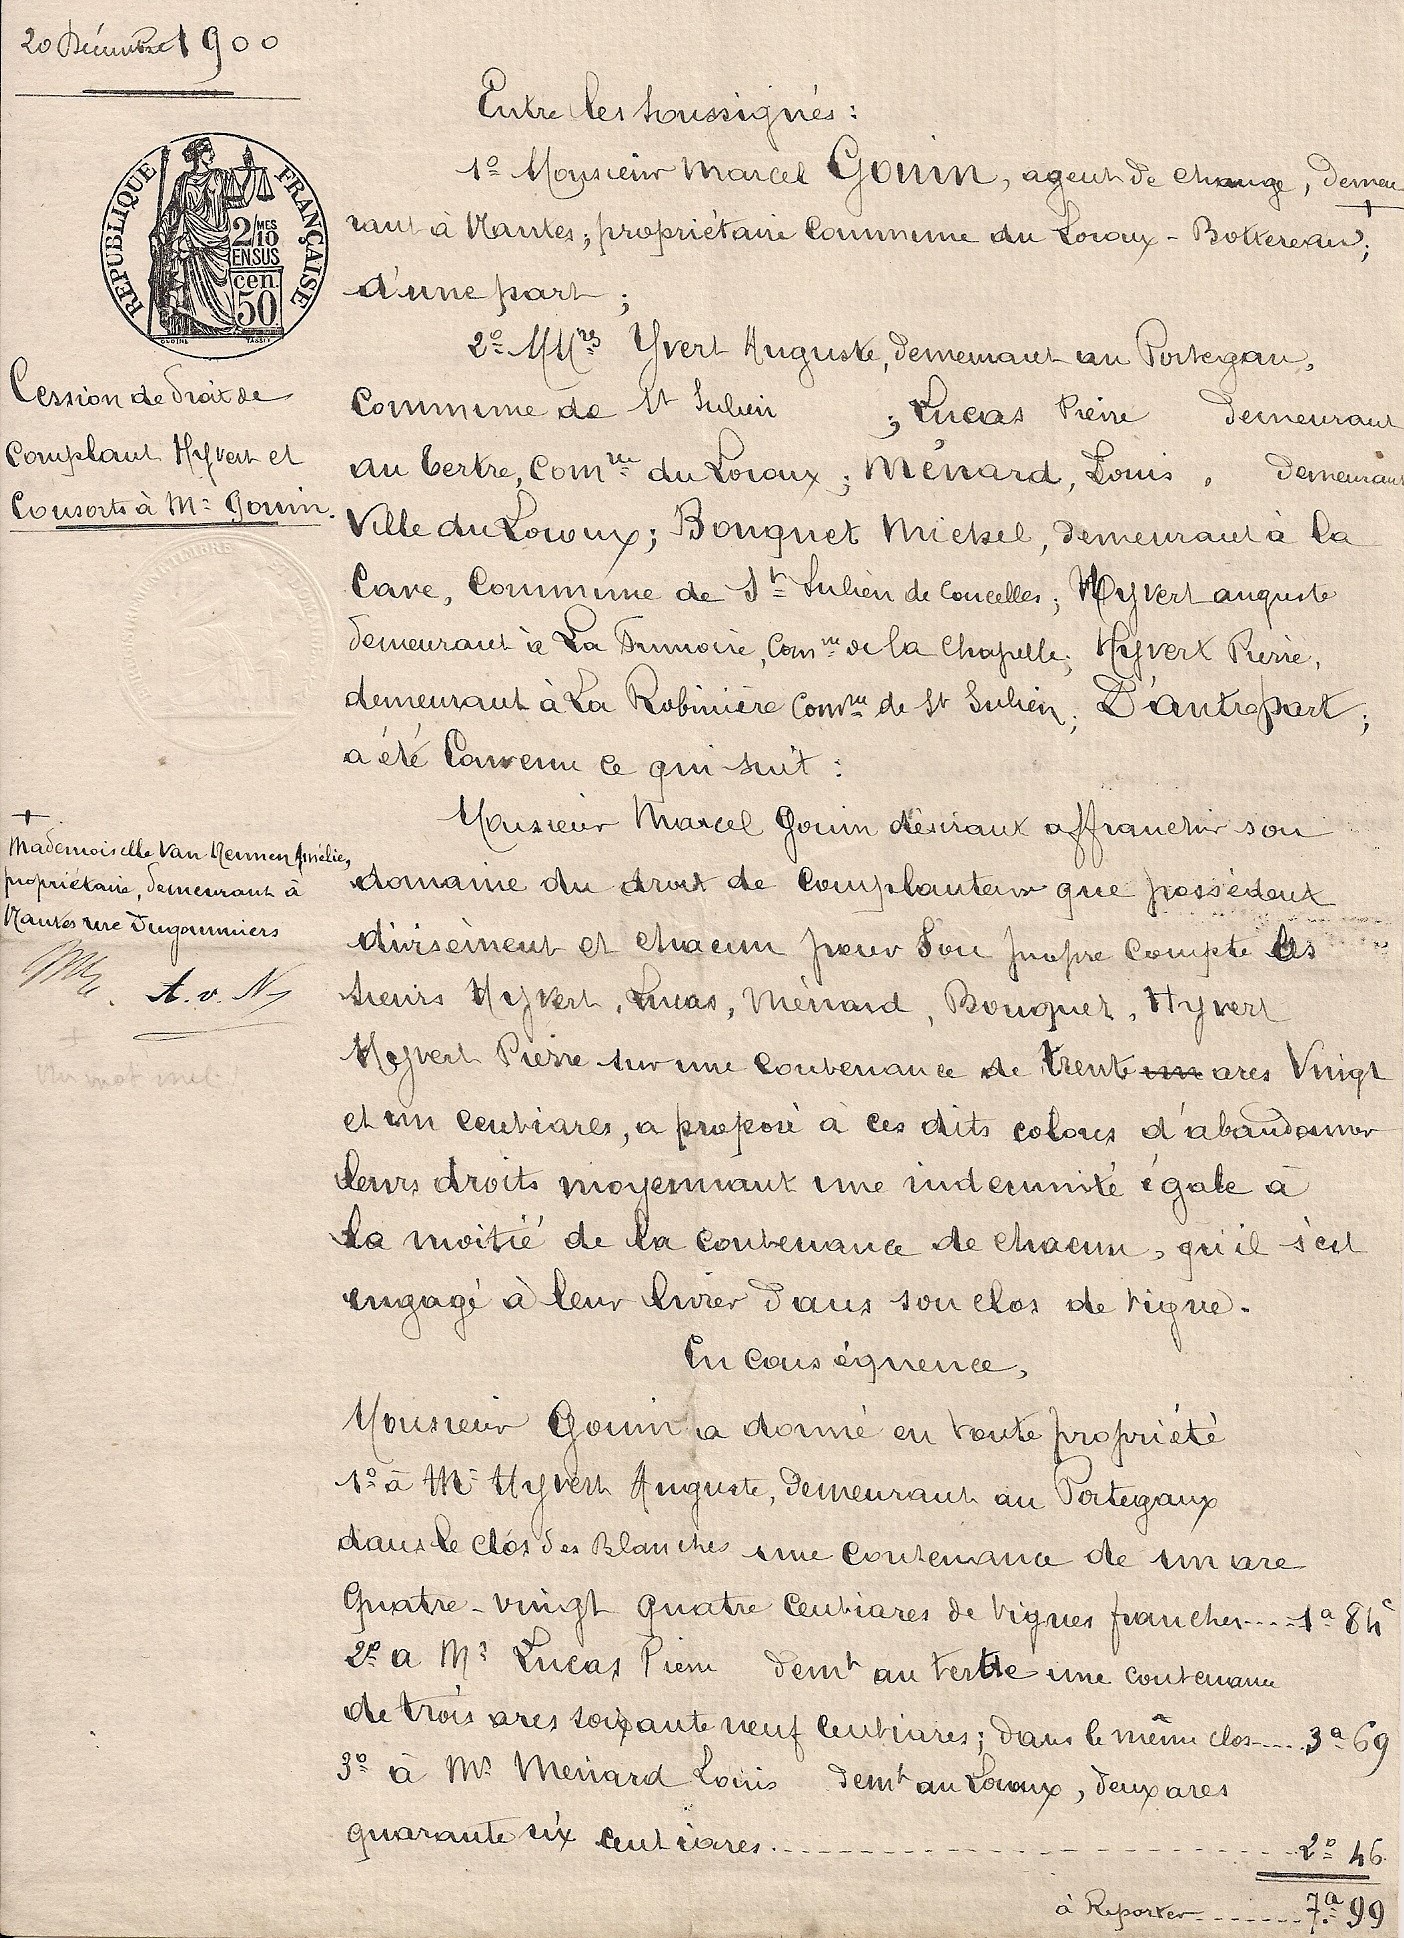 20 Décembre 1900
RÉPUBLIQUE FRANÇAISE
2/10
MES
EN SUS
cen.
50
OUDINÉ
TASSET
Cession de droit de
Complant Hyvert et
Consorts à Mr Gouin.
+
Mademoiselle Van Neunen Amélie,
propriétaire, demeurant à
Nantes rue Dugommiers
A. v. N
+
Un mot nul
Entre les soussignés :
1º Monsieur Marcel Gouin, agent de change, demeu
+
rant à Nantes ; propriétaire Commune du Loroux - Bottereau ;
d'une part ;
2º MMrs Yvert Auguste, demeurant au Portegau,
Commune de St Julien ; Lucas Pierre demeurant
au Tertre, Comne du Loroux ; Ménard, Louis, demeurant
Ville du Loroux ; Bouquet Michel, demeurant à la
Cave, Commune de St Julien de Concelles ; Hyvert auguste
demeurant à La, Comne de la Chapelle ; Hyvert Pierre,
demeurant à La Robinière Comne de St Julien ; D'autre part ;
a été Convenu ce qui suit :
Monsieur Marcel Gouin désirant affranchir son
domaine du droit de Complanteur que possèdent
divisément et chacun pour son propre compte les
sieurs Hyvert, Lucas, Ménard, Bouquet, Hyvert
Hyvert Pierre sur une contenance de trente un ares Vingt
et un centiares, a proposé à ces dits colons d'abandonner
leurs droits moyennant une indemnité égale à
la moitié de la contenance de chacun, qu'il s'est
engagé à leur livrer dans son clos de vigne.
En conséquence,
Monsieur Gouin a donné en toute propriété
1º à Mr Hyvert Auguste, demeurant au Portegaux
dans le clos des Blanches une contenance de un are
Quatre-vingt quatre centiares de vignes franches....1a 84c
2º a Mr Lucas Pierre demt au tertre une contenance
de trois ares soixante neuf centiares ; dans le même clos.....3a 69
3º à Mr Ménard Louis demt au Loroux, deux ares
quarante six centiares.................2a 46
à Reporter.......7a 99